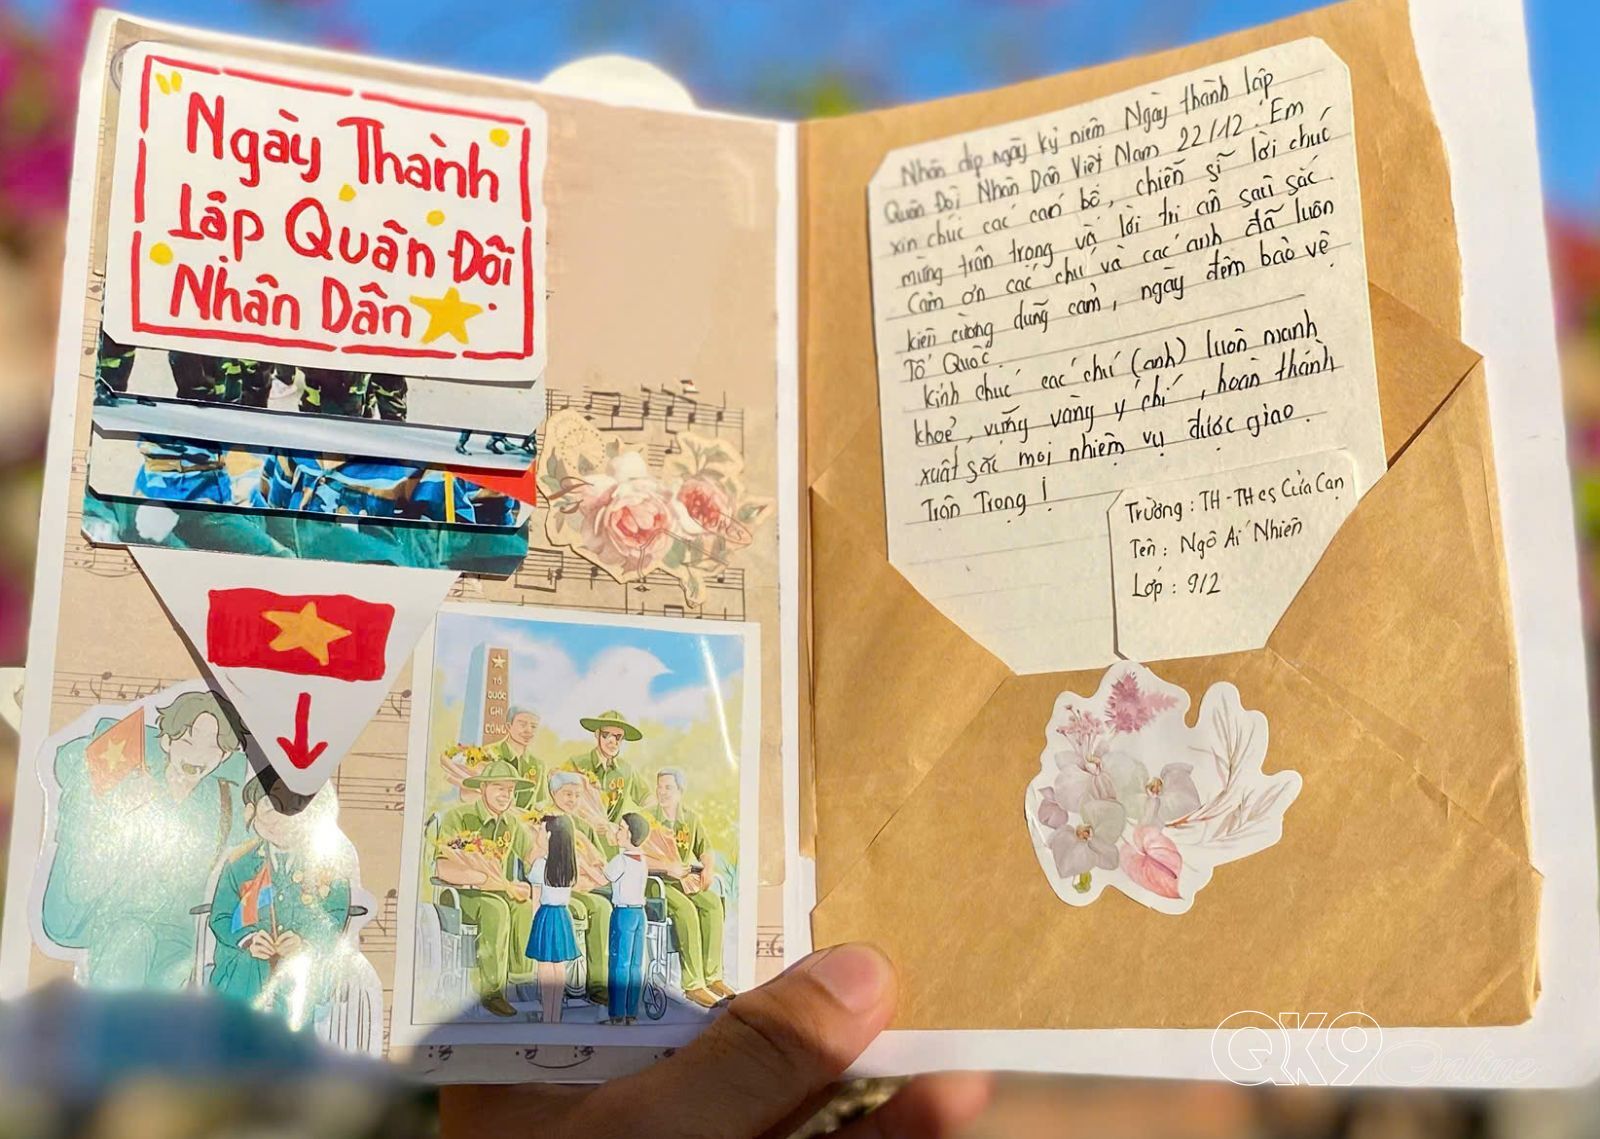 "Ngày Thành
Lập Quân Đội
Nhân Dân
TỔ
QUỐC
GHI
CÔNG
Nhân dịp ngày kỷ niệm Ngày thành lập
Quân Đội Nhân Dân Việt Nam 22/12. Em
xin chúc các cán bộ, chiến sĩ lời chúc
mừng trân trọng và lời tri ân sâu sắc.
Cảm ơn các chú và các anh đã luôn
kiên cường dũng cảm, ngày đêm bảo vệ
Tổ Quốc.
Kính chúc các chú (anh) luôn mạnh
khoẻ, vững vàng ý chí, hoàn thành
xuất sắc mọi nhiệm vụ được giao.
Trân Trọng!
Trường: TH-THCS Cửa Cạn
Tên: Ngô Ái Nhiên
Lớp: 9/2
QK9 Online